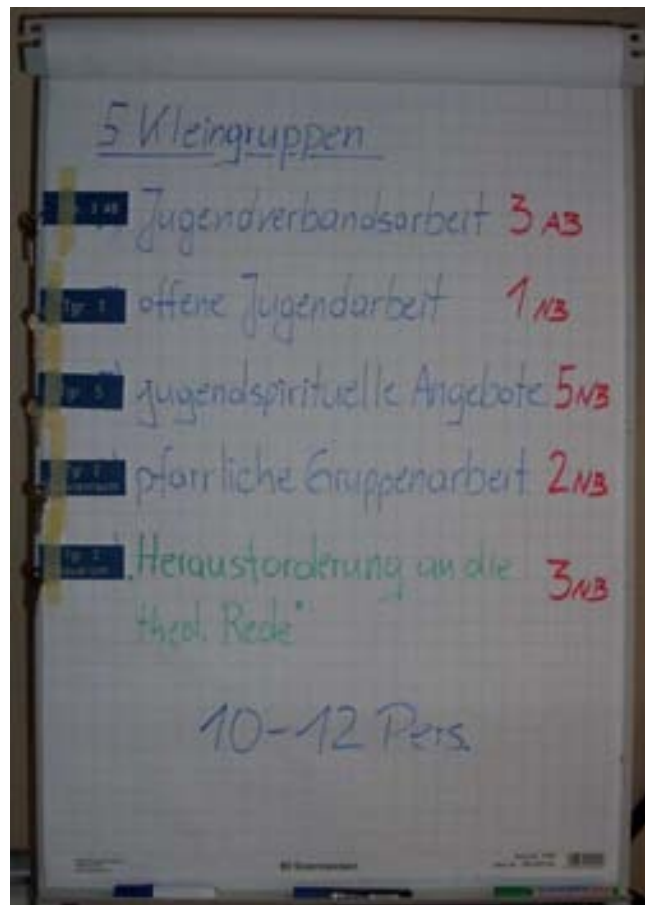 5 Kleingruppen
Jugendverbandsarbeit 3 AB
offene Jugendarbeit 1 NB
jugendspirituelle Angebote 5 NB
pfarrliche Gruppenarbeit 2 NB
Herausforderung an die
theol. Rede" 3 NB
10-12 Pers.